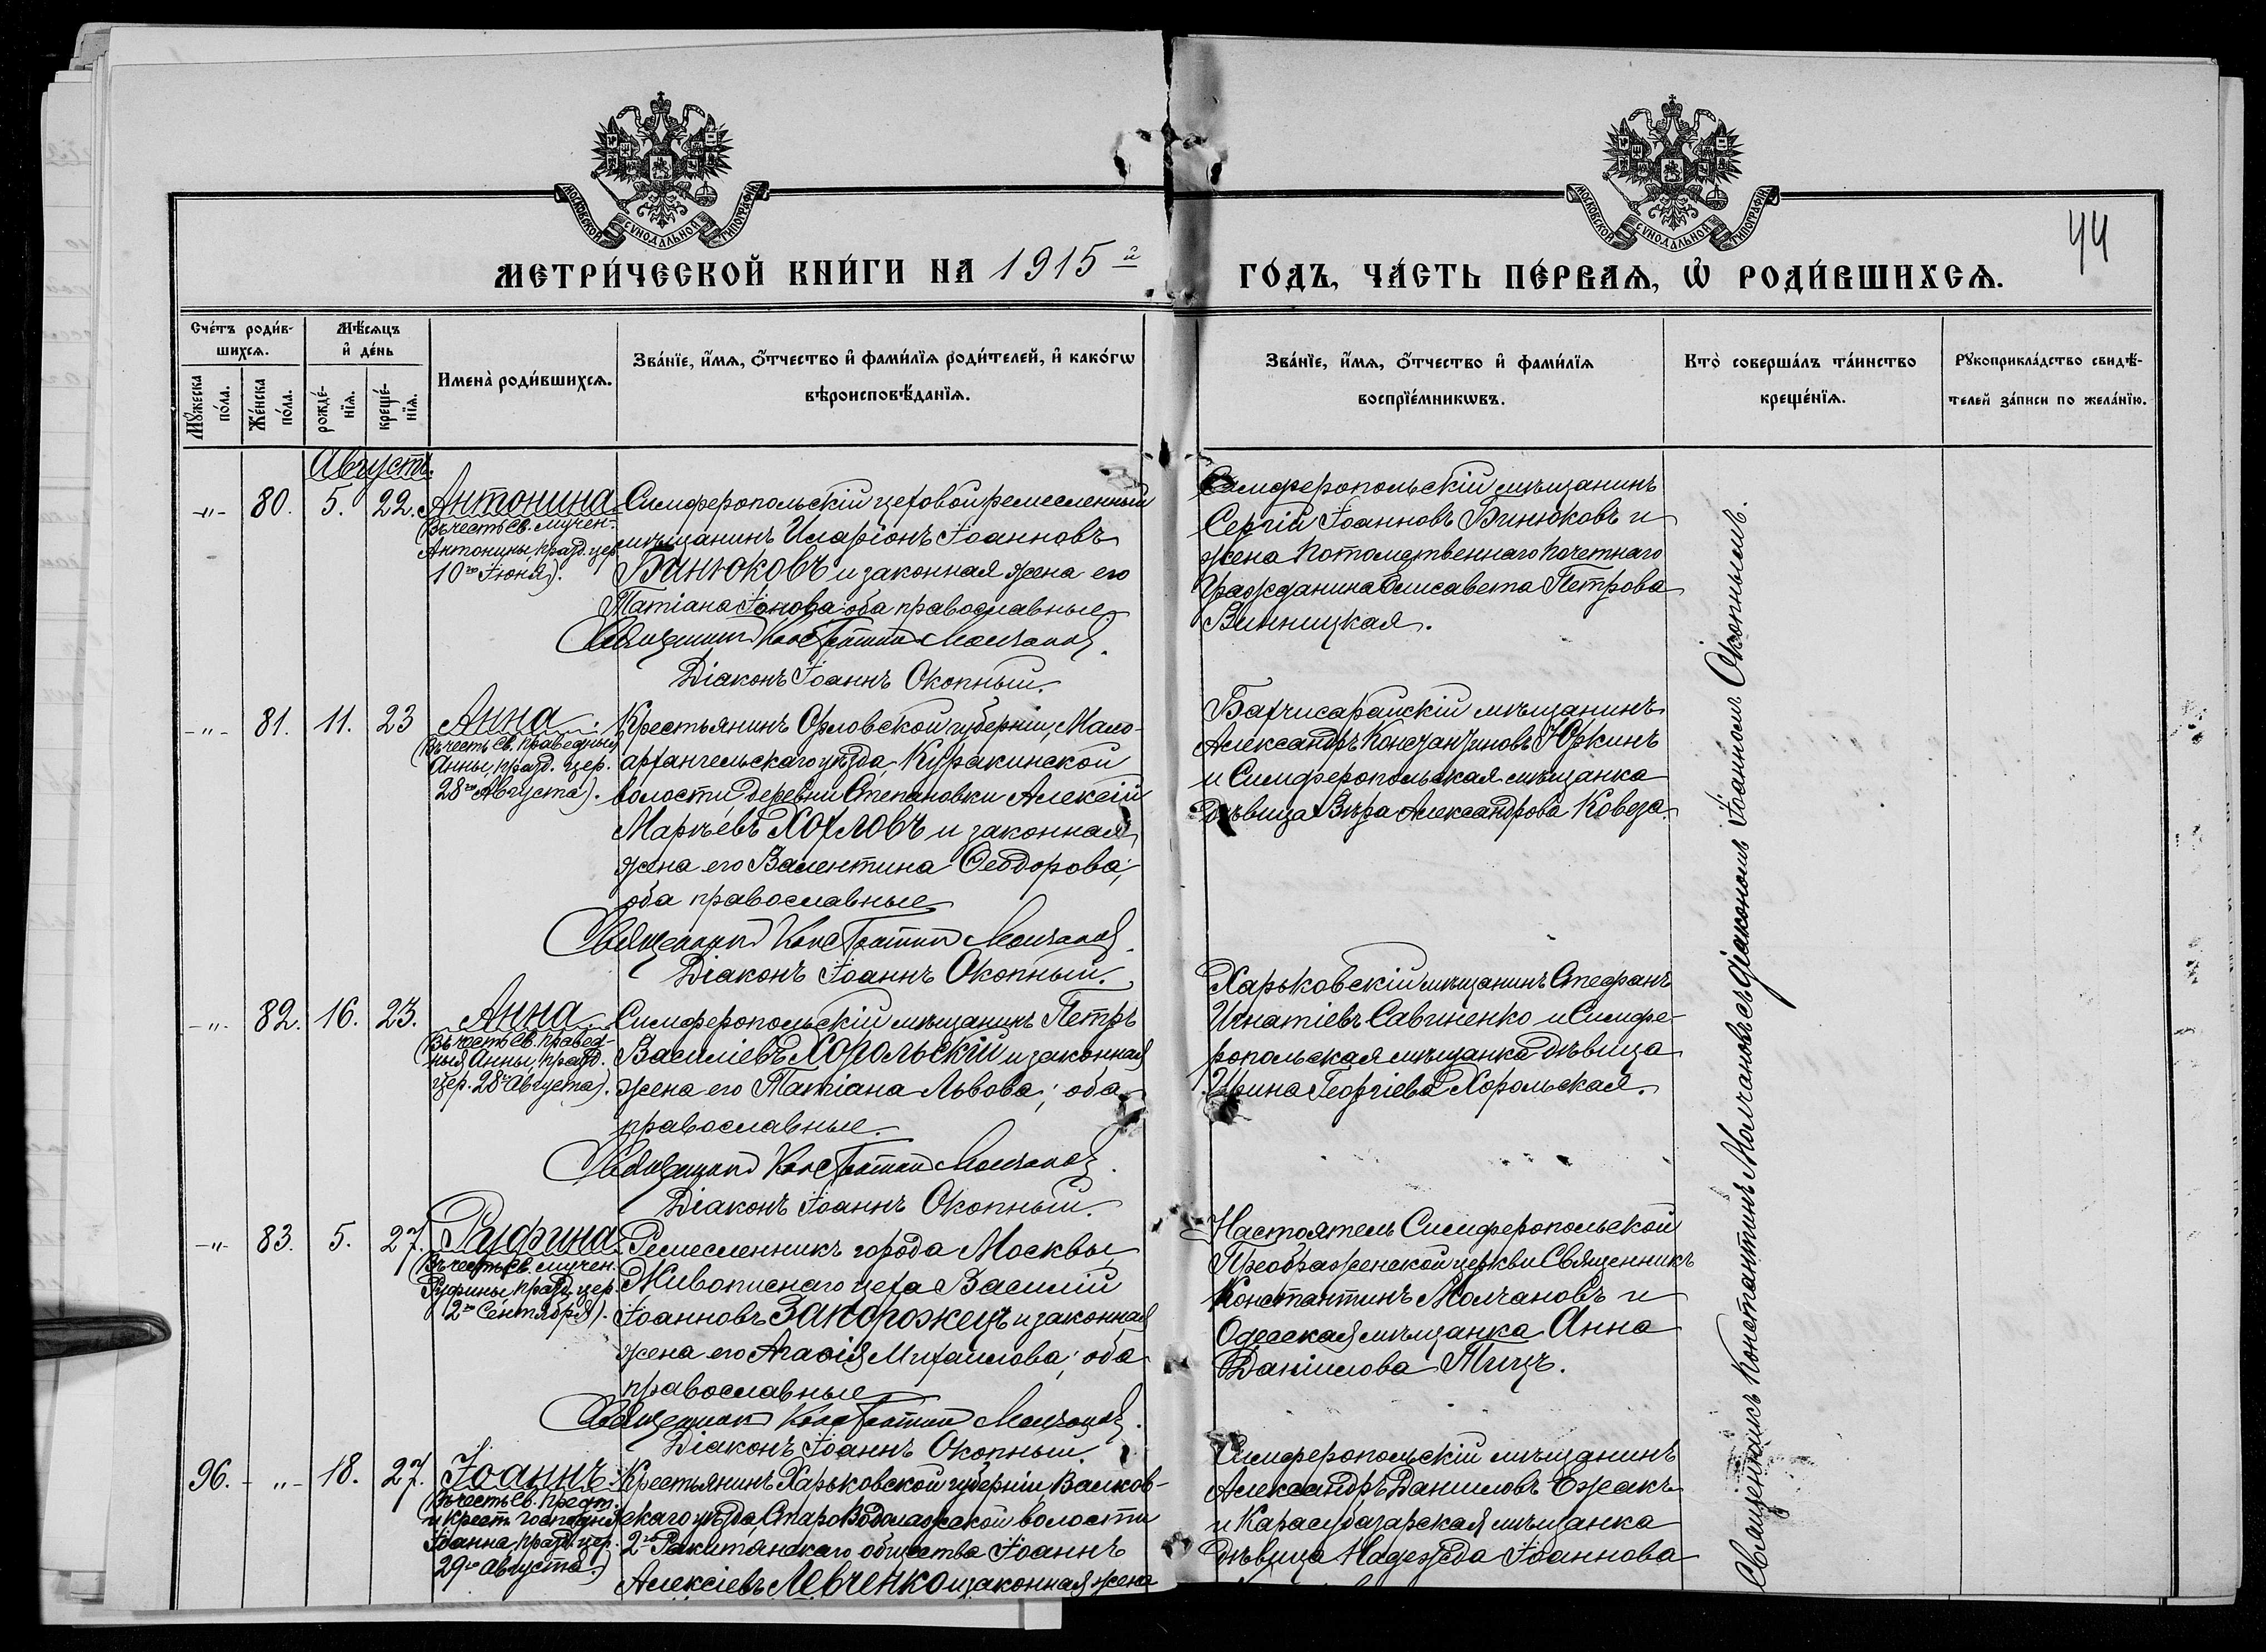 МОСКОВСКОЙ СУНОДАЛЬНОЙ ТИПОГРАФІИ
МОСКОВСКОЙ СУНОДАЛЬНОЙ ТИПОГРАФІИ
44
МЕТРИ́ЧЕСКОЙ КНИ́ГИ НА 1915й
ГО́ДЪ, ЧА́СТЬ ПЕ́РВАѦ, Ѡ РОДИ́ВШИХСѦ.
Счéтъ роди́в-
шихсѧ.
Мѣ́сѧцъ
и́ дéнь
Мꙋ́жеска
по́ла.
Жéнска
по́ла.
рождé-
нїѧ.
крещé-
нїѧ.
Именà роди́вшихсѧ.
Звáнїе, и́мѧ, ѻ́тчество и́ фами́лїѧ роди́телей, и́ какóгѡ
вѣроисповѣ́данїѧ.
Звáнїе, и́мѧ, ѻ́тчество и́ фами́лїѧ
воспрїéмникѡвъ.
Ктò совершáлъ тáинство
крещéнїѧ.
Рꙋкоприклáдство свидѣ́-
телей зáписи по желáнїю.
Августъ.
-„- 80. 5. 22. Антонина
(въ честь Св. мучен.
Антонины, празд. цер.
10го Іюня).
Симферопольскій цеховой ремесленный
мѣщанинъ Иларіонъ Іоанновъ
Бинюковъ и законная жена его
Татіана Іонова: оба православные
Священникъ Константинъ Молчановъ.
Діаконъ Іоаннъ Окопный.
Симферопольскій мѣщанинъ
Сергій Іоанновъ Бинюковъ и
жена потомственнаго почетнаго
гражданина Елисавета Петрова
Винницкая.
-„- 81. 11. 23 Анна
(въ честь Св. праведныя
Анны, празд. цер.
28го Августа).
Крестьянинъ Орловской губерніи, Мало-
архангельскаго уѣзда, Куракинской
волости деревни Степановки Алексій
Маркѣевъ Хохловъ и законная
жена его Валентина Ѳеодорова;
оба православные
Священникъ Константинъ Молчановъ.
Діаконъ Іоаннъ Окопный.
Бахчисарайскій мѣщанинъ
Александръ Константиновъ Юркинъ
и Симферопольская мѣщанка
дѣвица Вѣра Александрова Ковеза.
-„- 82. 16. 23. Анна
(въ честь Св. правед-
ныя Анны, празд.
цер. 28го Августа).
Симферопольскій мѣщанинъ Петръ
Василіевъ Хорольскій и законная
жена его Татіана Львова; оба
православные.
Священникъ Константинъ Молчановъ.
Діаконъ Іоаннъ Окопный.
Харьковскій мѣщанинъ Стефанъ
Игнатіевъ Савиненко и Симфе-
ропольская мѣщанка дѣвица
Ирина Георгіева Хорольская.
-„- 83. 5. 27. Руфина
(въ честь Св. мучен.
Руфины, празд. цер.
2го Сентября).
Ремесленникъ города Москвы,
Живописнаго цеха Василій
Іоанновъ Запорожецъ и законная
жена его Агаѳія Михаилова; оба
православные
Священникъ Константинъ Молчановъ.
Діаконъ Іоаннъ Окопный.
Настоятель Симферопольской
Преображенской церкви Священникъ
Константинъ Молчановъ и
Одесская мѣщанка Анна
Даніилова Тицъ.
96. -„- 18. 27. Іоаннъ
(въ честь Св. Предт.
и Крест. Господня
Іоанна, празд. цер.
29го Августа.)
Крестьянинъ Харьковской губерніи, Валков-
скаго уѣзда, Староводолажской волости
2го Ракитянскаго общества Іоаннъ
Алексіевъ Левченко и законная жена
Симферопольскій мѣщанинъ
Александръ Даниловъ Ежакъ
и Карасубазарская мѣщанка
дѣвица Надежда Іоаннова
Священникъ Константинъ Молчановъ съ діакономъ Іоанномъ Окопнымъ.